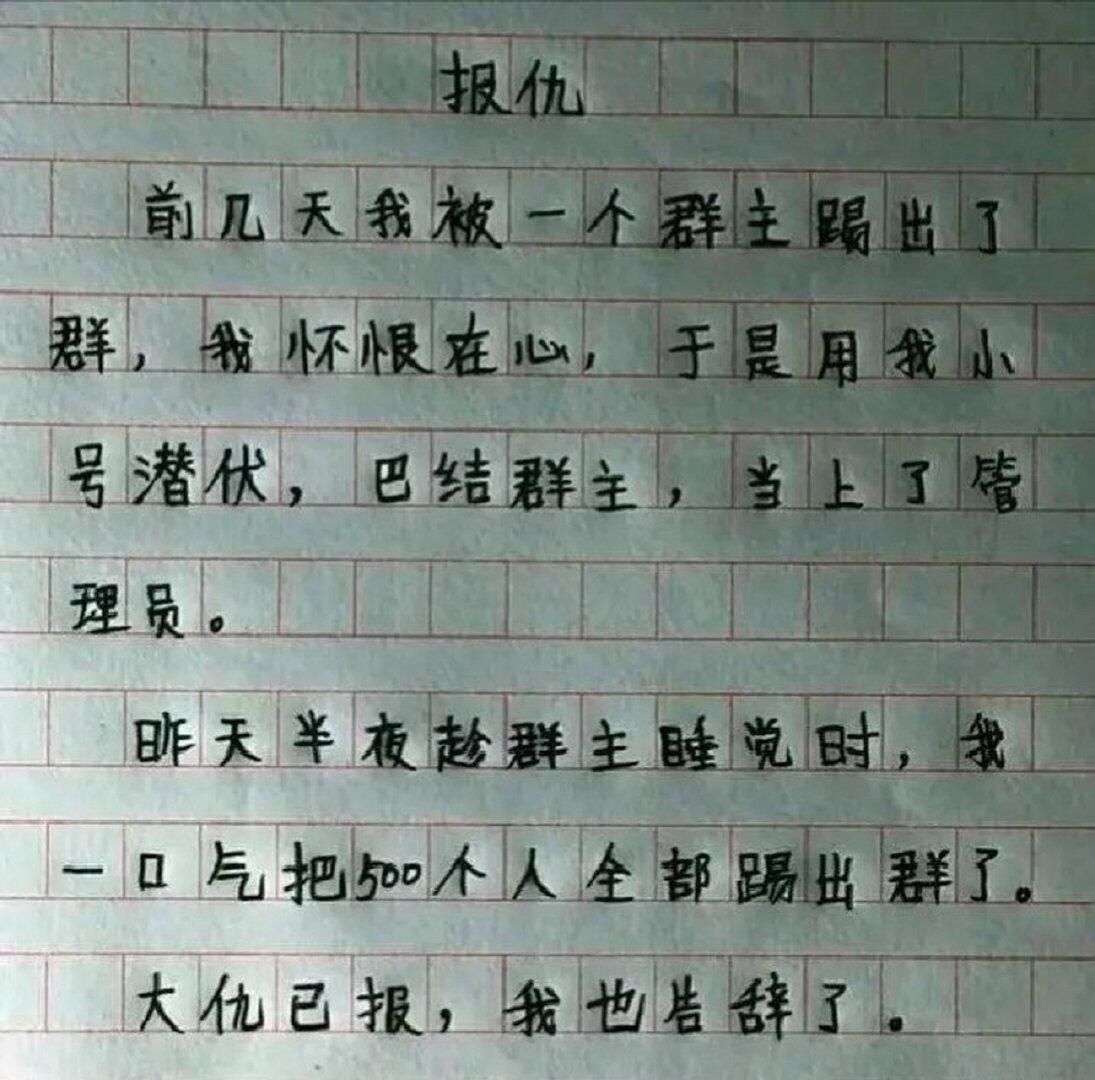 报仇
前几天我被一个群主踢出了
群，我怀恨在心，于是用我小
号潜伏，巴结群主，当上了管
理员。
昨天半夜趁群主睡觉时，我
一口气把500个人全部踢出群了。
大仇已报，我也告辞了。